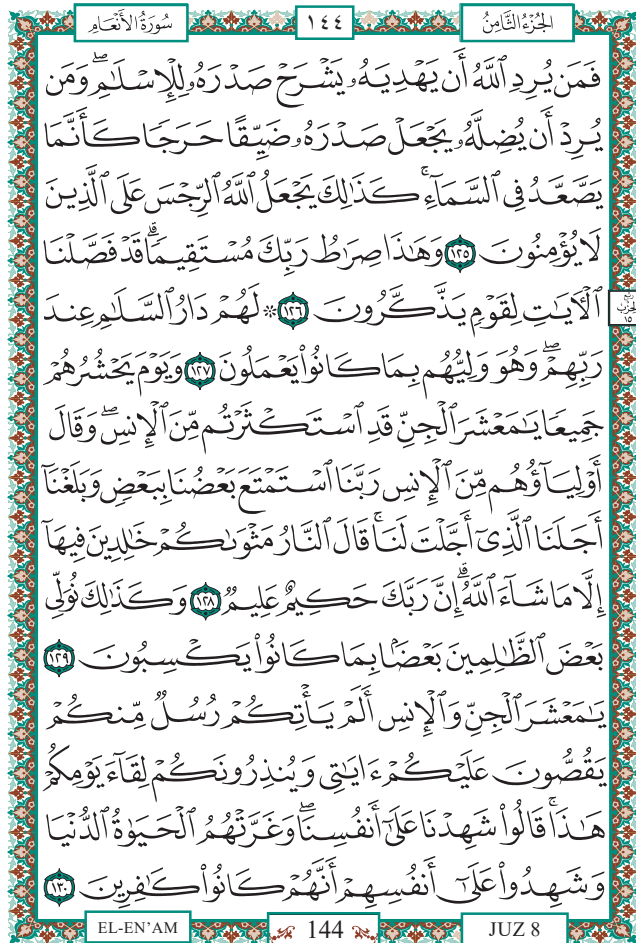 سُورَةُ الأَنْعَامِ ١٤٤ الجُزْءُ الثَّامِنُ
فَمَن يُرِدِ ٱللَّهُ أَن يَهْدِيَهُۥ يَشْرَحْ صَدْرَهُۥ لِلْإِسْلَٰمِۖ وَمَن
يُرِدْ أَن يُضِلَّهُۥ يَجْعَلْ صَدْرَهُۥ ضَيِّقًا حَرَجًا كَأَنَّمَا
يَصَّعَّدُ فِى ٱلسَّمَآءِۚ كَذَٰلِكَ يَجْعَلُ ٱللَّهُ ٱلرِّجْسَ عَلَى ٱلَّذِينَ
لَا يُؤْمِنُونَ ١٢٥ وَهَٰذَا صِرَٰطُ رَبِّكَ مُسْتَقِيمًاۗ قَدْ فَصَّلْنَا
ٱلْأَيَٰتِ لِقَوْمٍ يَذَّكَّرُونَ ١٢٦ ۞ لَهُمْ دَارُ ٱلسَّلَٰمِ عِندَ
رَبِّهِمْۖ وَهُوَ وَلِيُّهُم بِمَا كَانُوا۟ يَعْمَلُونَ ١٢٧ وَيَوْمَ يَحْشُرُهُمْ
جَمِيعًا يَٰمَعْشَرَ ٱلْجِنِّ قَدِ ٱسْتَكْثَرْتُم مِّنَ ٱلْإِنسِۖ وَقَالَ
أَوْلِيَآؤُهُم مِّنَ ٱلْإِنسِ رَبَّنَا ٱسْتَمْتَعَ بَعْضُنَا بِبَعْضٍ وَبَلَغْنَآ
أَجَلَنَا ٱلَّذِىٓ أَجَّلْتَ لَنَاۚ قَالَ ٱلنَّارُ مَثْوَىٰكُمْ خَٰلِدِينَ فِيهَآ
إِلَّا مَا شَآءَ ٱللَّهُۗ إِنَّ رَبَّكَ حَكِيمٌ عَلِيمٌ ١٢٨ وَكَذَٰلِكَ نُوَلِّى
بَعْضَ ٱلظَّٰلِمِينَ بَعْضًۢا بِمَا كَانُوا۟ يَكْسِبُونَ ١٢٩
يَٰمَعْشَرَ ٱلْجِنِّ وَٱلْإِنسِ أَلَمْ يَأْتِكُمْ رُسُلٌ مِّنكُمْ
يَقُصُّونَ عَلَيْكُمْ ءَايَٰتِى وَيُنذِرُونَكُمْ لِقَآءَ يَوْمِكُمْ
هَٰذَاۚ قَالُوا۟ شَهِدْنَا عَلَىٰٓ أَنفُسِنَاۖ وَغَرَّتْهُمُ ٱلْحَيَوٰةُ ٱلدُّنْيَا
وَشَهِدُوا۟ عَلَىٰٓ أَنفُسِهِمْ أَنَّهُمْ كَانُوا۟ كَٰفِرِينَ ١٣٠
EL-EN'AM 144 JUZ 8